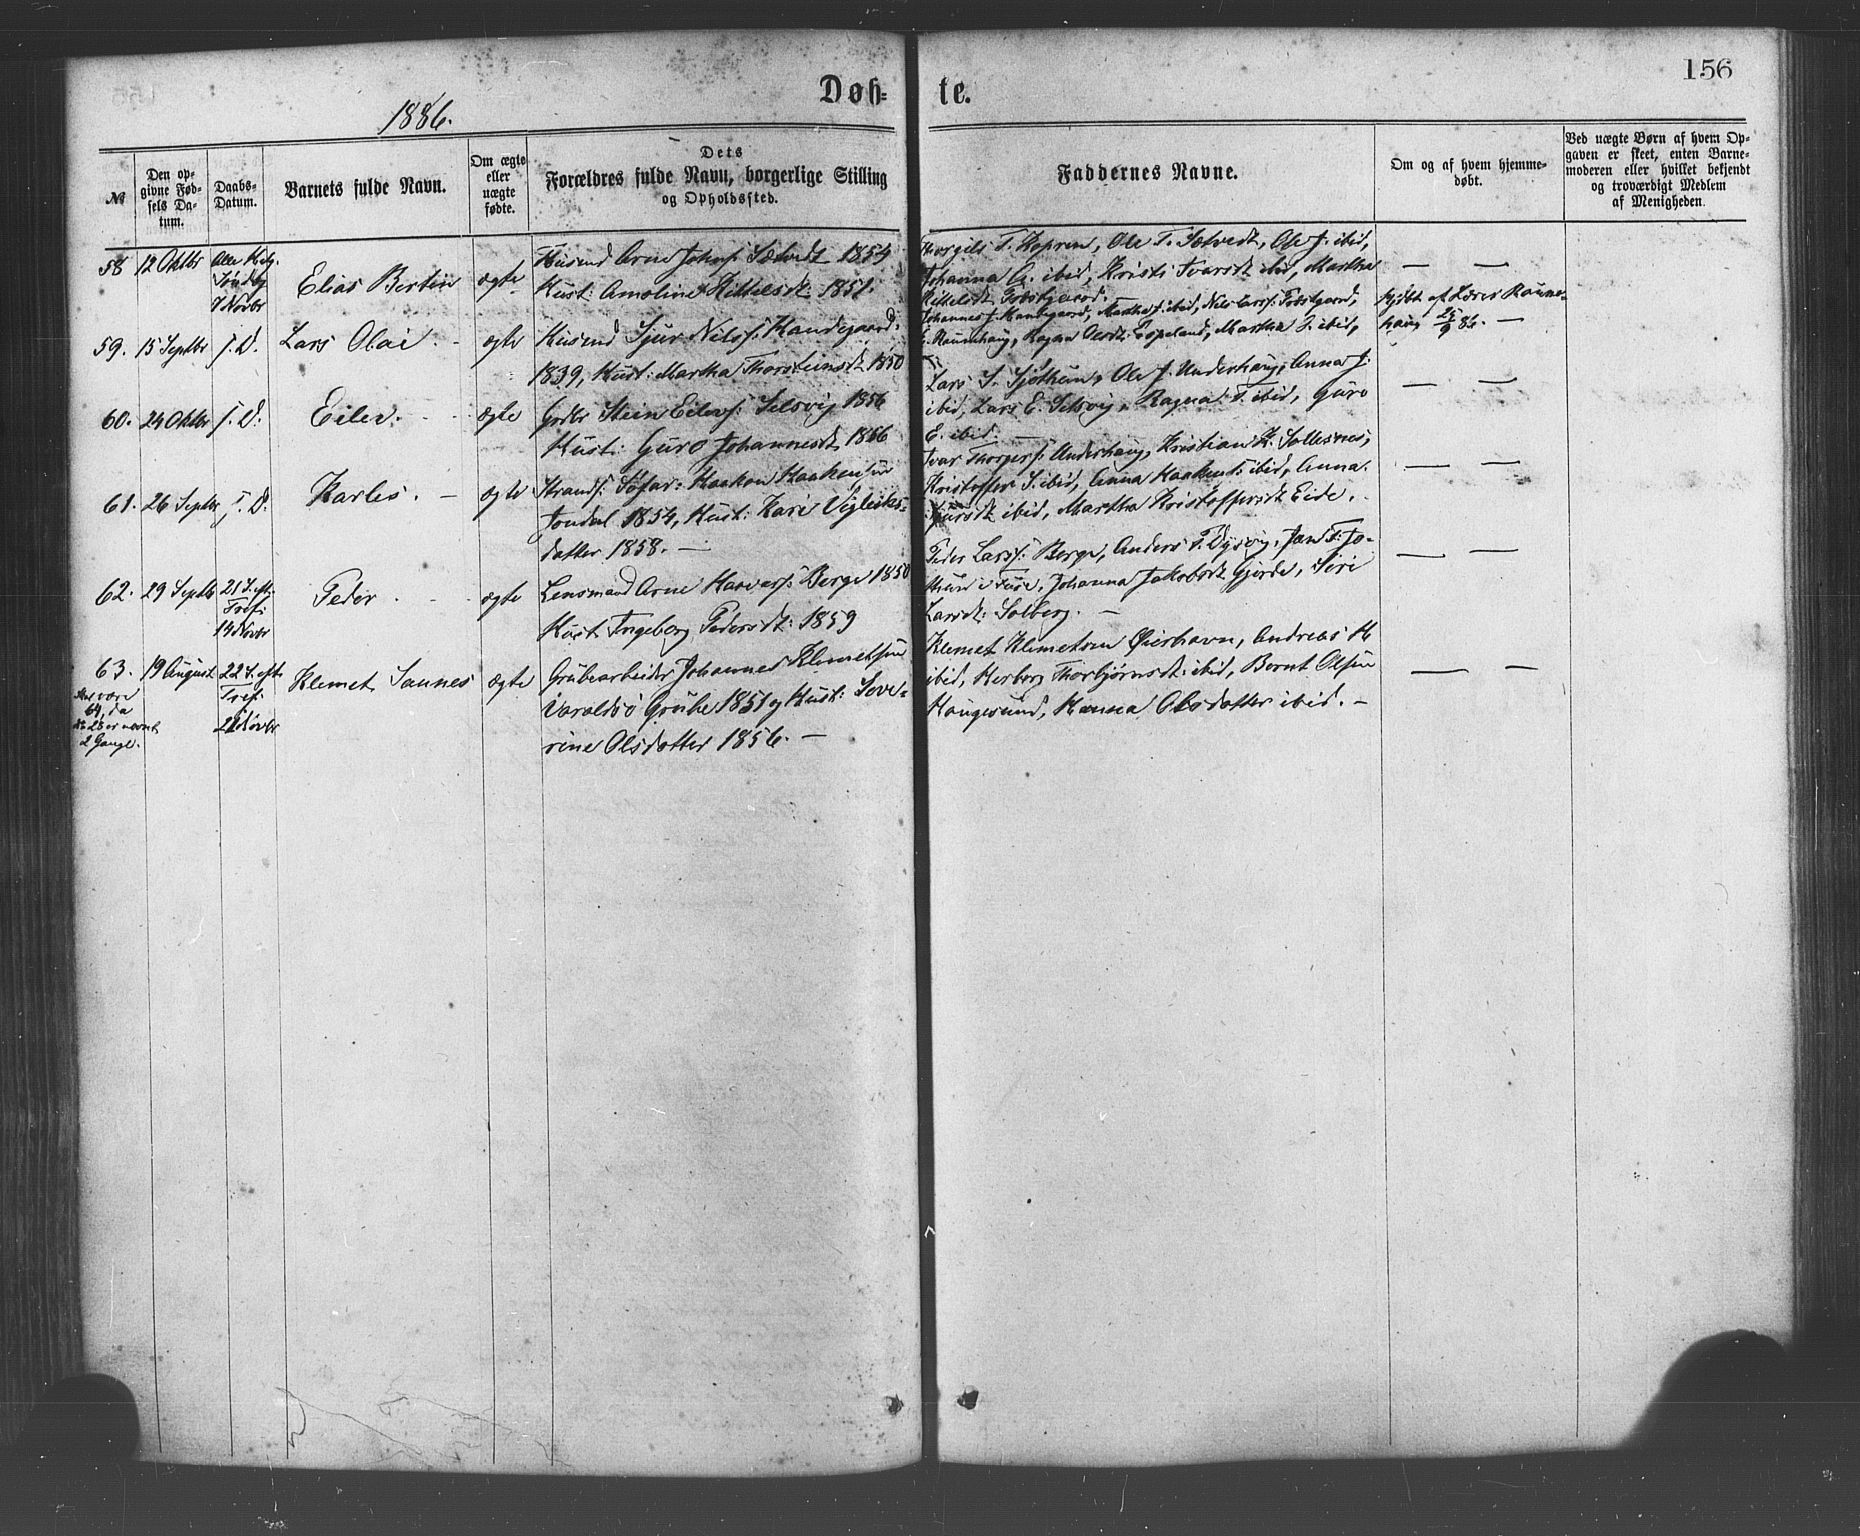 156
Døb- te.
1886.
№
Den op-
givne Fød-
sels Da-
tum.
Daabs-
Datum.
Barnets fulde Navn.
Om ægte
eller
uægte
fødte.
Dets
Forældres fulde Navn, borgerlige Stilling
og Opholdssted.
Faddernes Navne.
Om og af hvem hjemme-
døbt.
Ved uægte Børn af hvem Op-
gaven er skeet, enten Barne-
moderen eller hvilket bekjendt
og troværdigt Medlem
af Menigheden.
58 12 Oktbr
Alle Helg.
Søndag
7 Novbr
Elias Bertin
ægte
Husmd Arne Johs: Sætvedt 1854
Hust: Amoline Kittelsdt. 1851.
Thorgils T. Kopren, Ole T. Sætvedt, Ole J. ibid,
Johanna A. ibid, Kristi Ivarsdt ibid, Martha
Kittelsdt
— —
59. 15 Septbr J. D. Lars Olai. - ægte
Husmd Sjur Nilss: Handegaard
1839, Hust: Martha Thorsteinsdt 1850
Johannes J. Handegaard, Martha J. ibid, Nils Larss:
Ragna Olsdt: Espeland, Martha J. ibid,
hjdbt af Lærer Raunehaug 25/9 86. —
60. 24 Oktbr J. D: Eilev. - - ægte
Gbr Stein Eilevs: Selsvig 1856
Hust: Guro Johannesdt. 1866
Lars S. Sjøthun, Ole J. Underhaug, Anna J.
ibid, Lars E. Selsvig, Ragna T. ibid, Guro
E. ibid. —
— —
61. 26 Septbr J. D. Karles. - ægte
Strands: Søfar: Haakon Haakensen
Jondal 1854, Hust: Kari Vigleiks-
datter 1858. —
Ivar Thorgers: Underhaug, Kristian K. Sollesnes,
Kristoffer S. ibid, Anna Haakensd: ibid, Anna
Sjursdt ibid, Martha Kristoffersdt Eide.
— —
62. 29 Septbr
21 S. eft.
Tref:
14 Novbr
Peder - - ægte
Lensmand Arne Haavars: Berge 1850
Hust. Ingeborg Pedersdt: 1859
Peder Larss: Berge, Anders T. Dysvig, Jan T. Jo-
Johanna Jakobsdt Gjerde, Siri
Larsdt: Solberg. —
— —
63. 19 August
22 S. eft.
Tref:
21 Novbr
Skal være
64, da
No 28 er nævnt
2 Gange.
Klemet Sannes ægte
Grubearbeider Johannes Klemetsen
Varaldsø Grube 1851 og Hust: Seve-
rine Olsdatter 1856. —
Klemet Klemetsen Øierhavn, Andreas H
ibid, Herborg Thorbjørnsdt: ibid, Bernt Olsen
Haugesund, Hanna Olsdatter ibid. -
— —